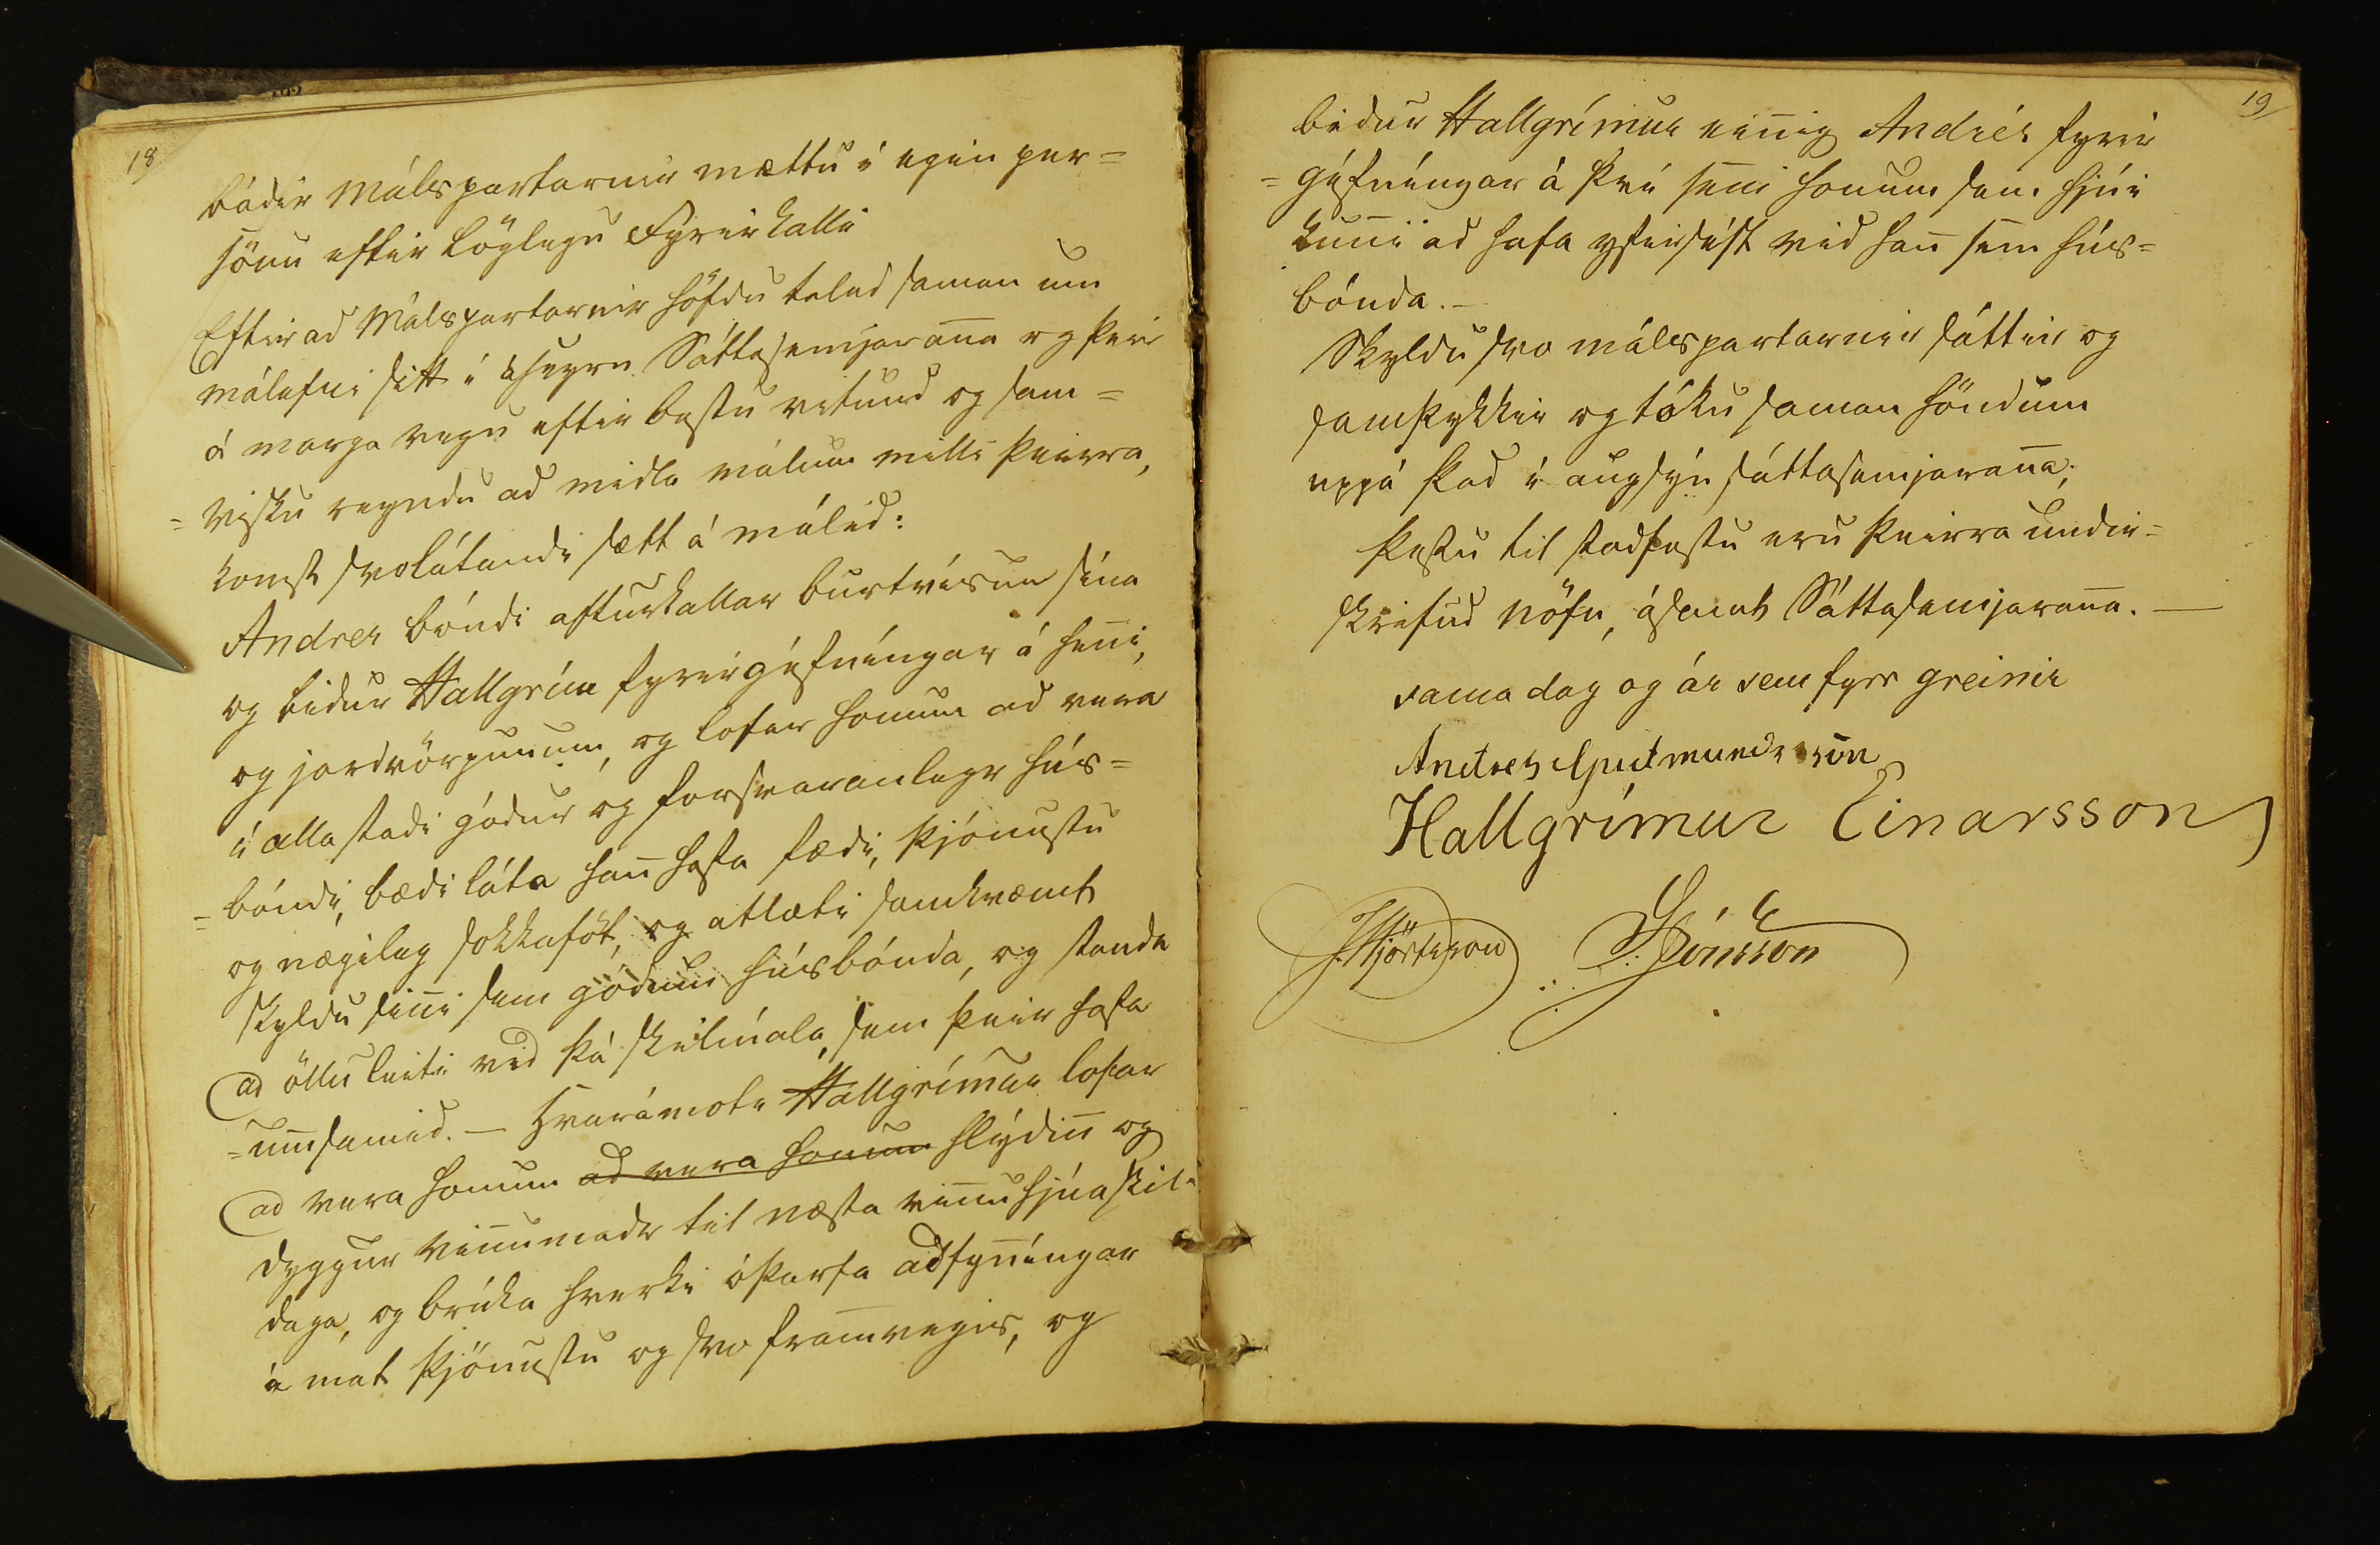 18
báðir Málspartarnir mættu í egin per=
sónu eftir löglegu Fyrirkalli
Eftir ad Málspartarnir höfdu talad saman um
málefni sitt í áheyrn Sáttasemjaran̄a og þeir
á marga vegu eftir bestu vitund og sam=
=visku reyndu ad midla málum milli þeirra,
komst svolátandi sætt á málid:
Andres bóndi afturkallar burtvísun sína
og bidur Hallgrím fyrirgéfníngar á hen̄i,
og jardvörpunum, og lofar honum ad vera
í alla stadi gódur og forsvaranlegr hús=
=bóndi, bædi láta han̄ hafa fædi, þjónustu
og nægileg sokkaföt, og atlæti samkvæmt
skyldu sin̄i sem gódum húsbónda, og standa
ad öllu leiti vid þá skilmála, sem þeir hafa
=umsamid. — Hvarámóti Hallgrímur lofar
ad vera honum ad vera honum hlýdin̄ og
dyggur vin̄umadr til næsta vin̄uhjúaskil-
daga, og brúka hverki óþarfa adfyn̄íngar
á mat þjónustu og svo framvegis, og
19
bidur Hallgrímur ein̄ig Andrés fyrir
=géfníngar á því sem honum sem hjúi
kun̄i ad hafa yfirsést vid han̄ sem hús=
bónda. —
Skyldu svo málspartarnir sáttir og
samþykkir og tóku saman höndum
uppá þad í augsýn sáttasemjaran̄a;
þessu til stadfestu eru þeirra undir=
skrifud nöfn, ásamt Sáttasemjaran̄a. —
sama dag og ár sem fyrr greinir
Andres Gudmundsson
Hallgrímur Einarsson
J. Hjörtsson Jónsson